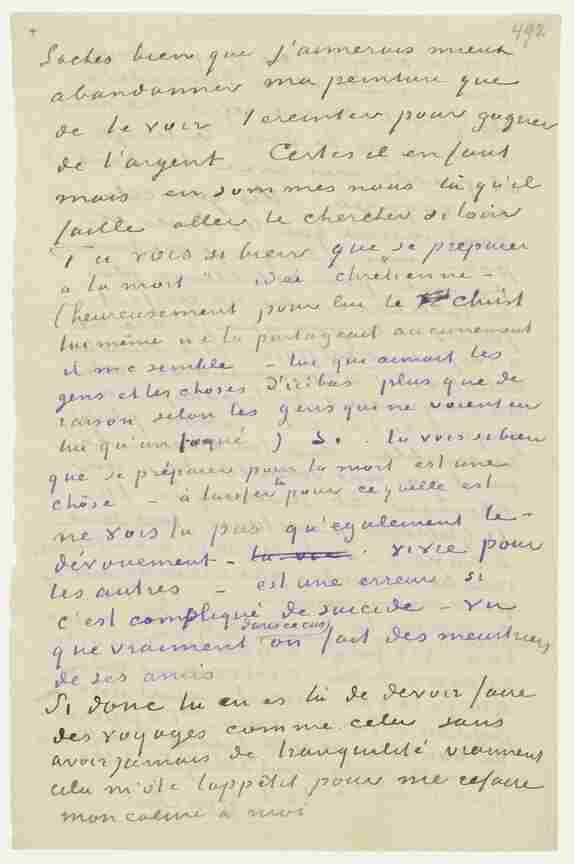 492
Saches bien que j'aimerais mieux
abandonner ma peinture que
de te voir t'ereinter pour gagner
de l'argent Certes il en faut
mais en sommes nous là qu'il
faille aller le chercher si loin
Tu vois si bien que "se preparer
a la mort" idée chrétienne –
(heureusement pour lui le Christ
lui même ne la partageait aucunement
il me semble – lui qui aimait les
gens et les choses d'ici bas plus que de
raison selon les gens qui ne voient en
lui qu'un toqué) Si tu vois si bien
que se préparer pour la mort est une
chose – à laisser là pour ce qu'elle est
ne vois tu pas qu'également le
dévouement – la vie vivre pour
les autres – est une erreur si
c'est compliqué de suicide – vu
que vraiment dans ce cas on fait des meurtriers
de ses amis
Si donc tu en es là de devoir faire
des voyages comme cela sans
avoir jamais de tranquilité vraiment
cela m'ôte l'appétit pour me refaire
mon calme à moi